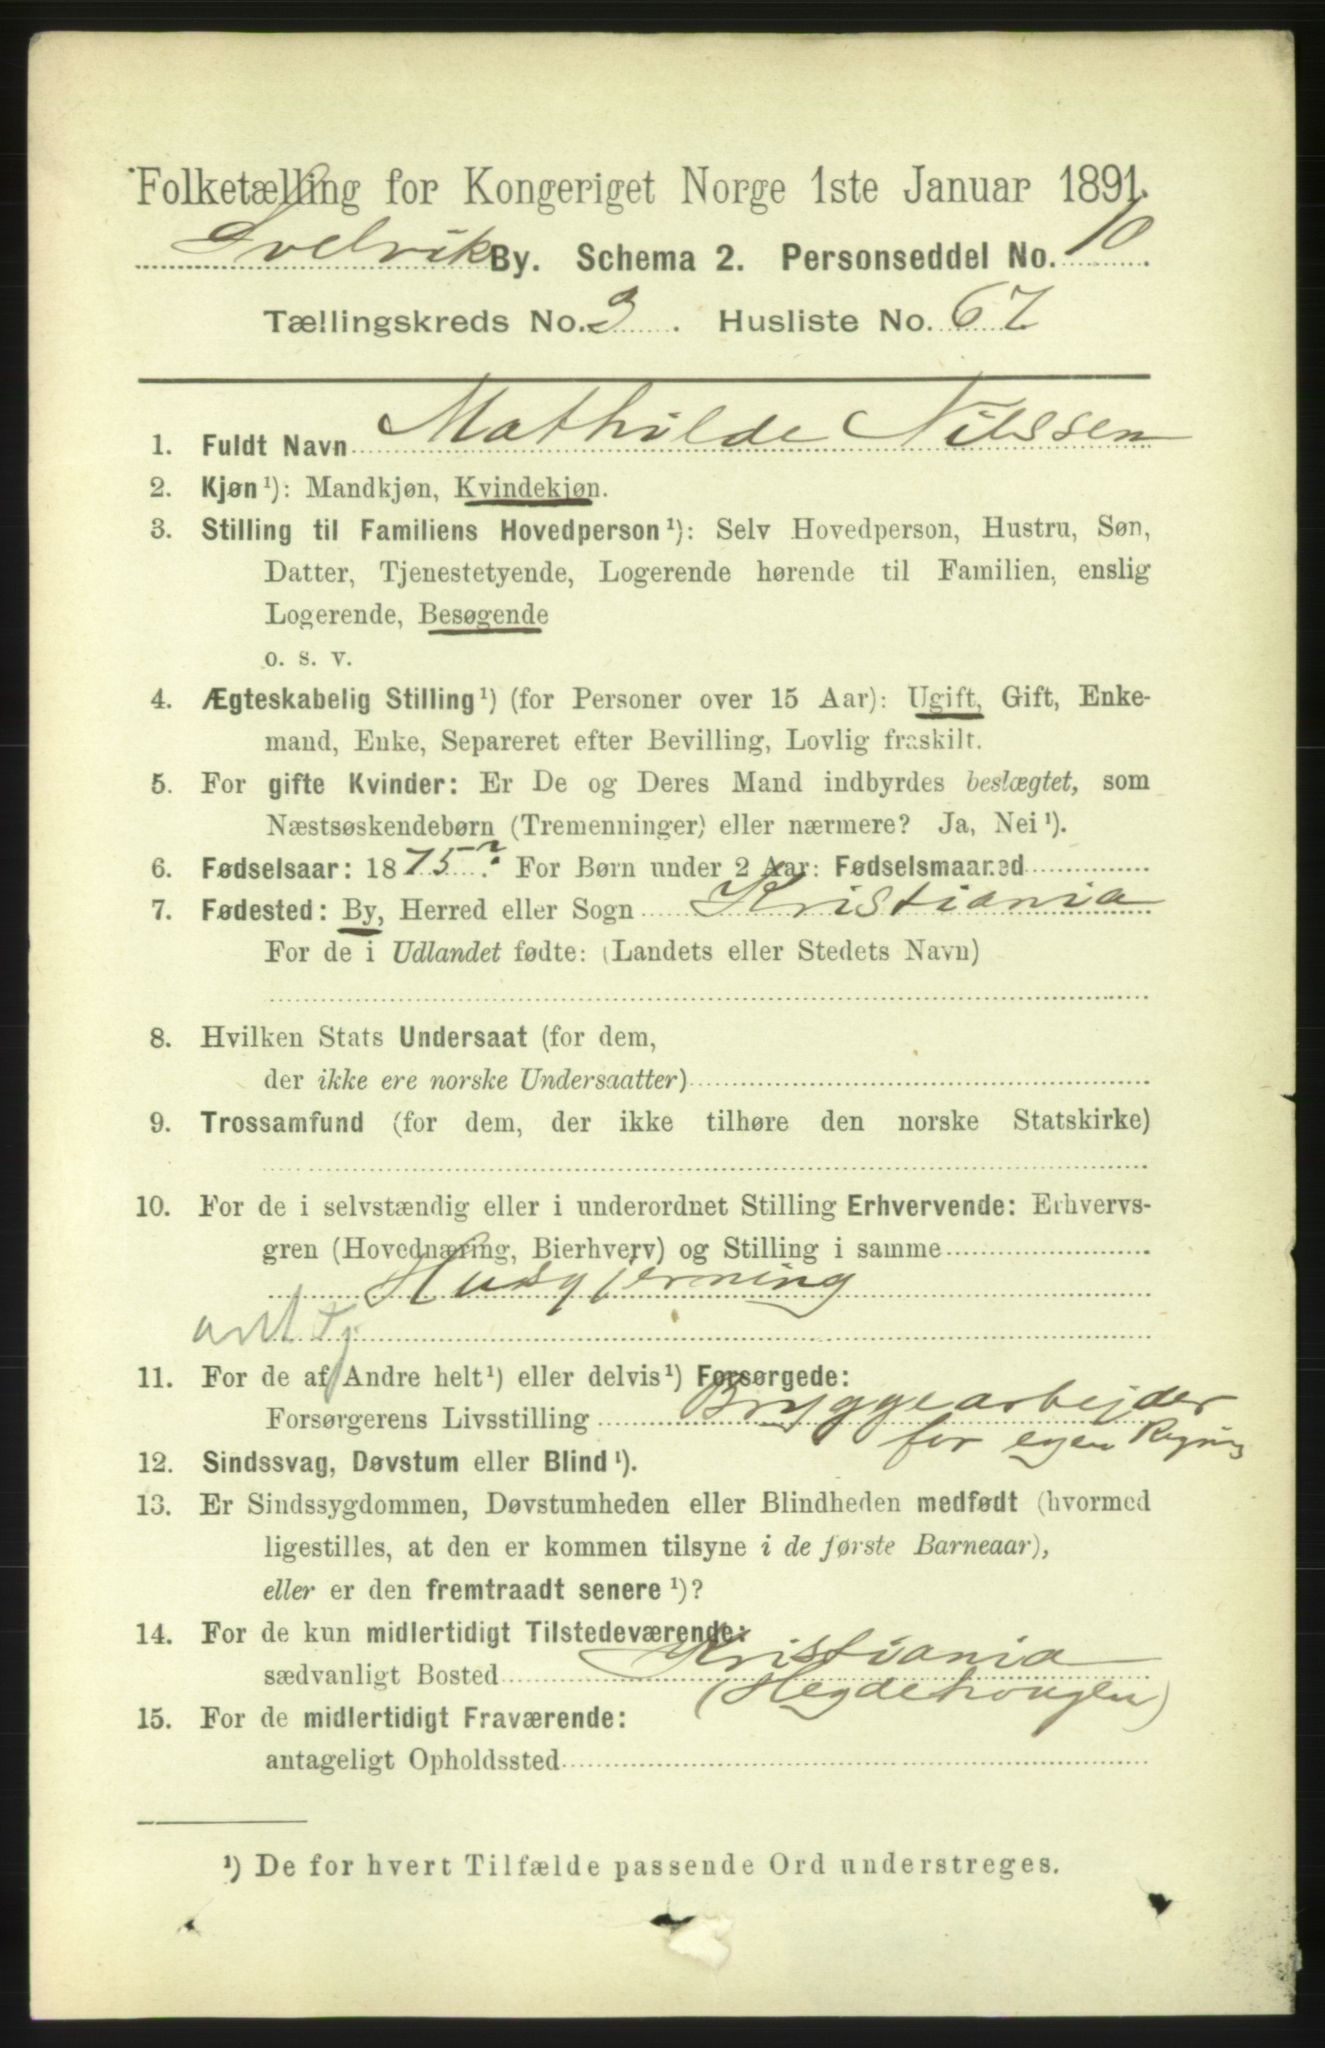 Folketælling for Kongeriget Norge 1ste Januar 1891.
Svelvik By. Schema 2. Personseddel No. 10
Tællingskreds No. 3. Husliste No. 67
1. Fuldt Navn Mathilde Nilssen
2. Kjøn ¹): Mandkjøn, Kvindekjøn.
3. Stilling til Familiens Hovedperson ¹): Selv Hovedperson, Hustru, Søn,
Datter, Tjenestetyende, Logerende hørende til Familien, enslig
Logerende, Besøgende
o. s. v.
4. Ægteskabelig Stilling ¹) (for Personer over 15 Aar): Ugift, Gift, Enke-
mand, Enke, Separeret efter Bevilling, Lovlig fraskilt.
5. For gifte Kvinder: Er De og Deres Mand indbyrdes beslægtet, som
Næstsøskendebørn (Tremenninger) eller nærmere? Ja, Nei ¹).
6. Fødselsaar: 1875? For Børn under 2 Aar: Fødselsmaaned
7. Fødested: By, Herred eller Sogn Kristiania
For de i Udlandet fødte: (Landets eller Stedets Navn)
8. Hvilken Stats Undersaat (for dem,
der ikke ere norske Undersaatter)
9. Trossamfund (for dem, der ikke tilhøre den norske Statskirke)
10. For de i selvstændig eller i underordnet Stilling Erhvervende: Erhvervs-
gren (Hovednæring, Bierhverv) og Stilling i samme
Husgjerning
11. For de af Andre helt ¹) eller delvis ¹) Forsørgede:
Forsørgerens Livsstilling Bryggearbejder
for egen Regning
12. Sindssvag, Døvstum eller Blind ¹).
13. Er Sindssygdommen, Døvstumheden eller Blindheden medfødt (hvormed
ligestilles, at den er kommen tilsyne i de første Barneaar),
eller er den fremtraadt senere ¹)?
14. For de kun midlertidigt Tilstedeværende:
sædvanligt Bosted Kristiania
(Hegdehougen)
15. For de midlertidigt Fraværende:
antageligt Opholdssted
¹) De for hvert Tilfælde passende Ord understreges.